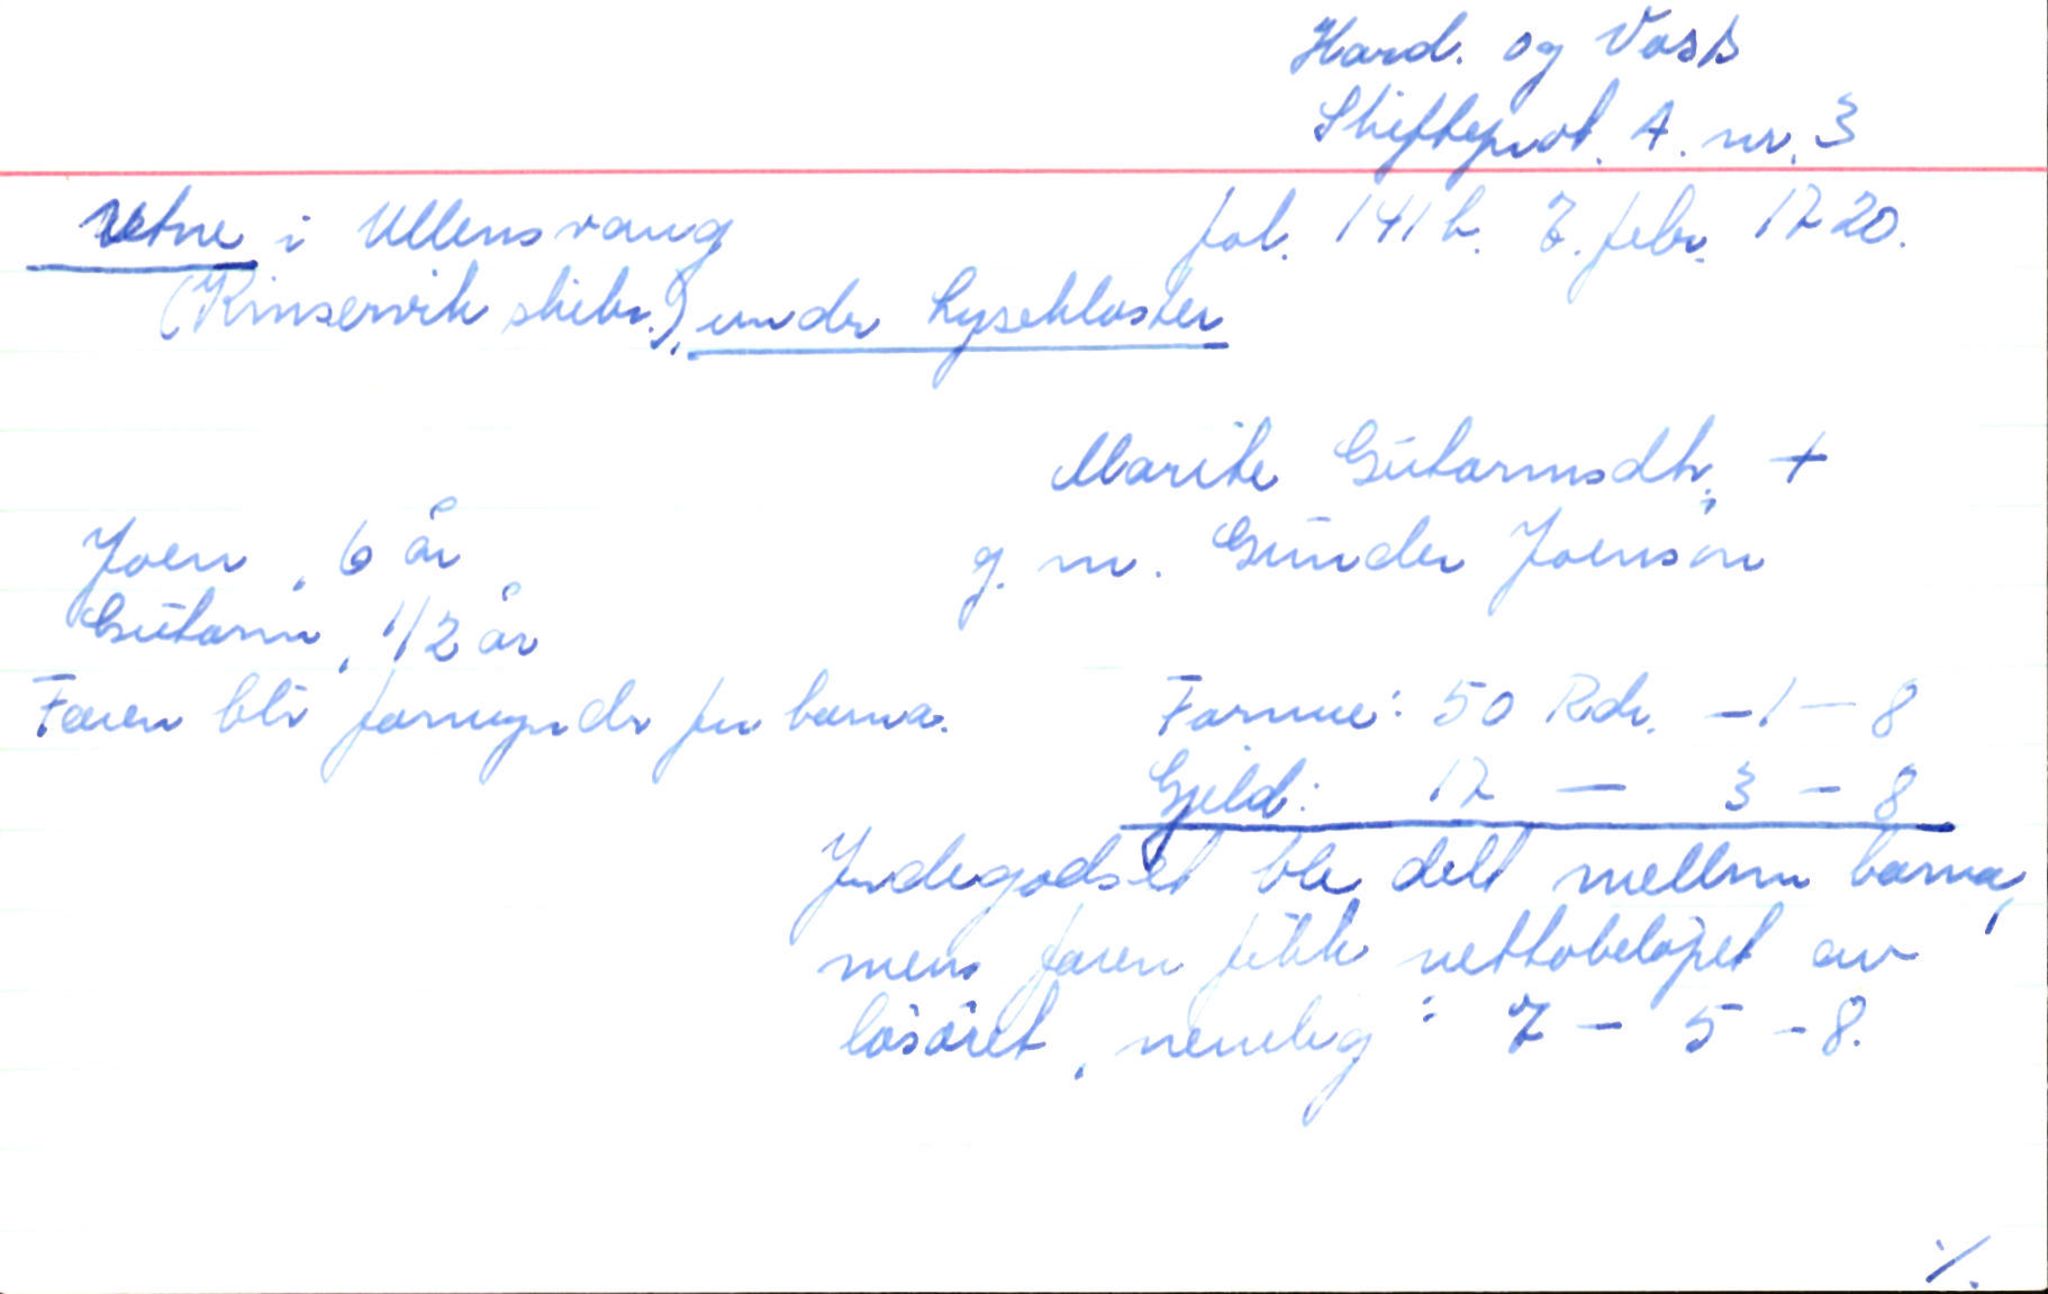 Hard. og Voss
Skifteprot. A. nr. 3
Utne i Ullensvang fol. 141 b. 7. febr. 1720.
(Kinservik skibr.), under Lysekloster
Marite Gutormsdtr. +
g. m. Gunder Joensön
Joen, 6 år
Gutorm, 1/2 år
Faren blir formynder for barna.
Formue: 50 Rdr. - 1 - 8
Gjeld: 17 - 3 - 8
Jordegodset ble delt mellom barna,
mens faren fikk nettobeløpet av
løsøret, nemlig: 7 - 5 - 8.
./.